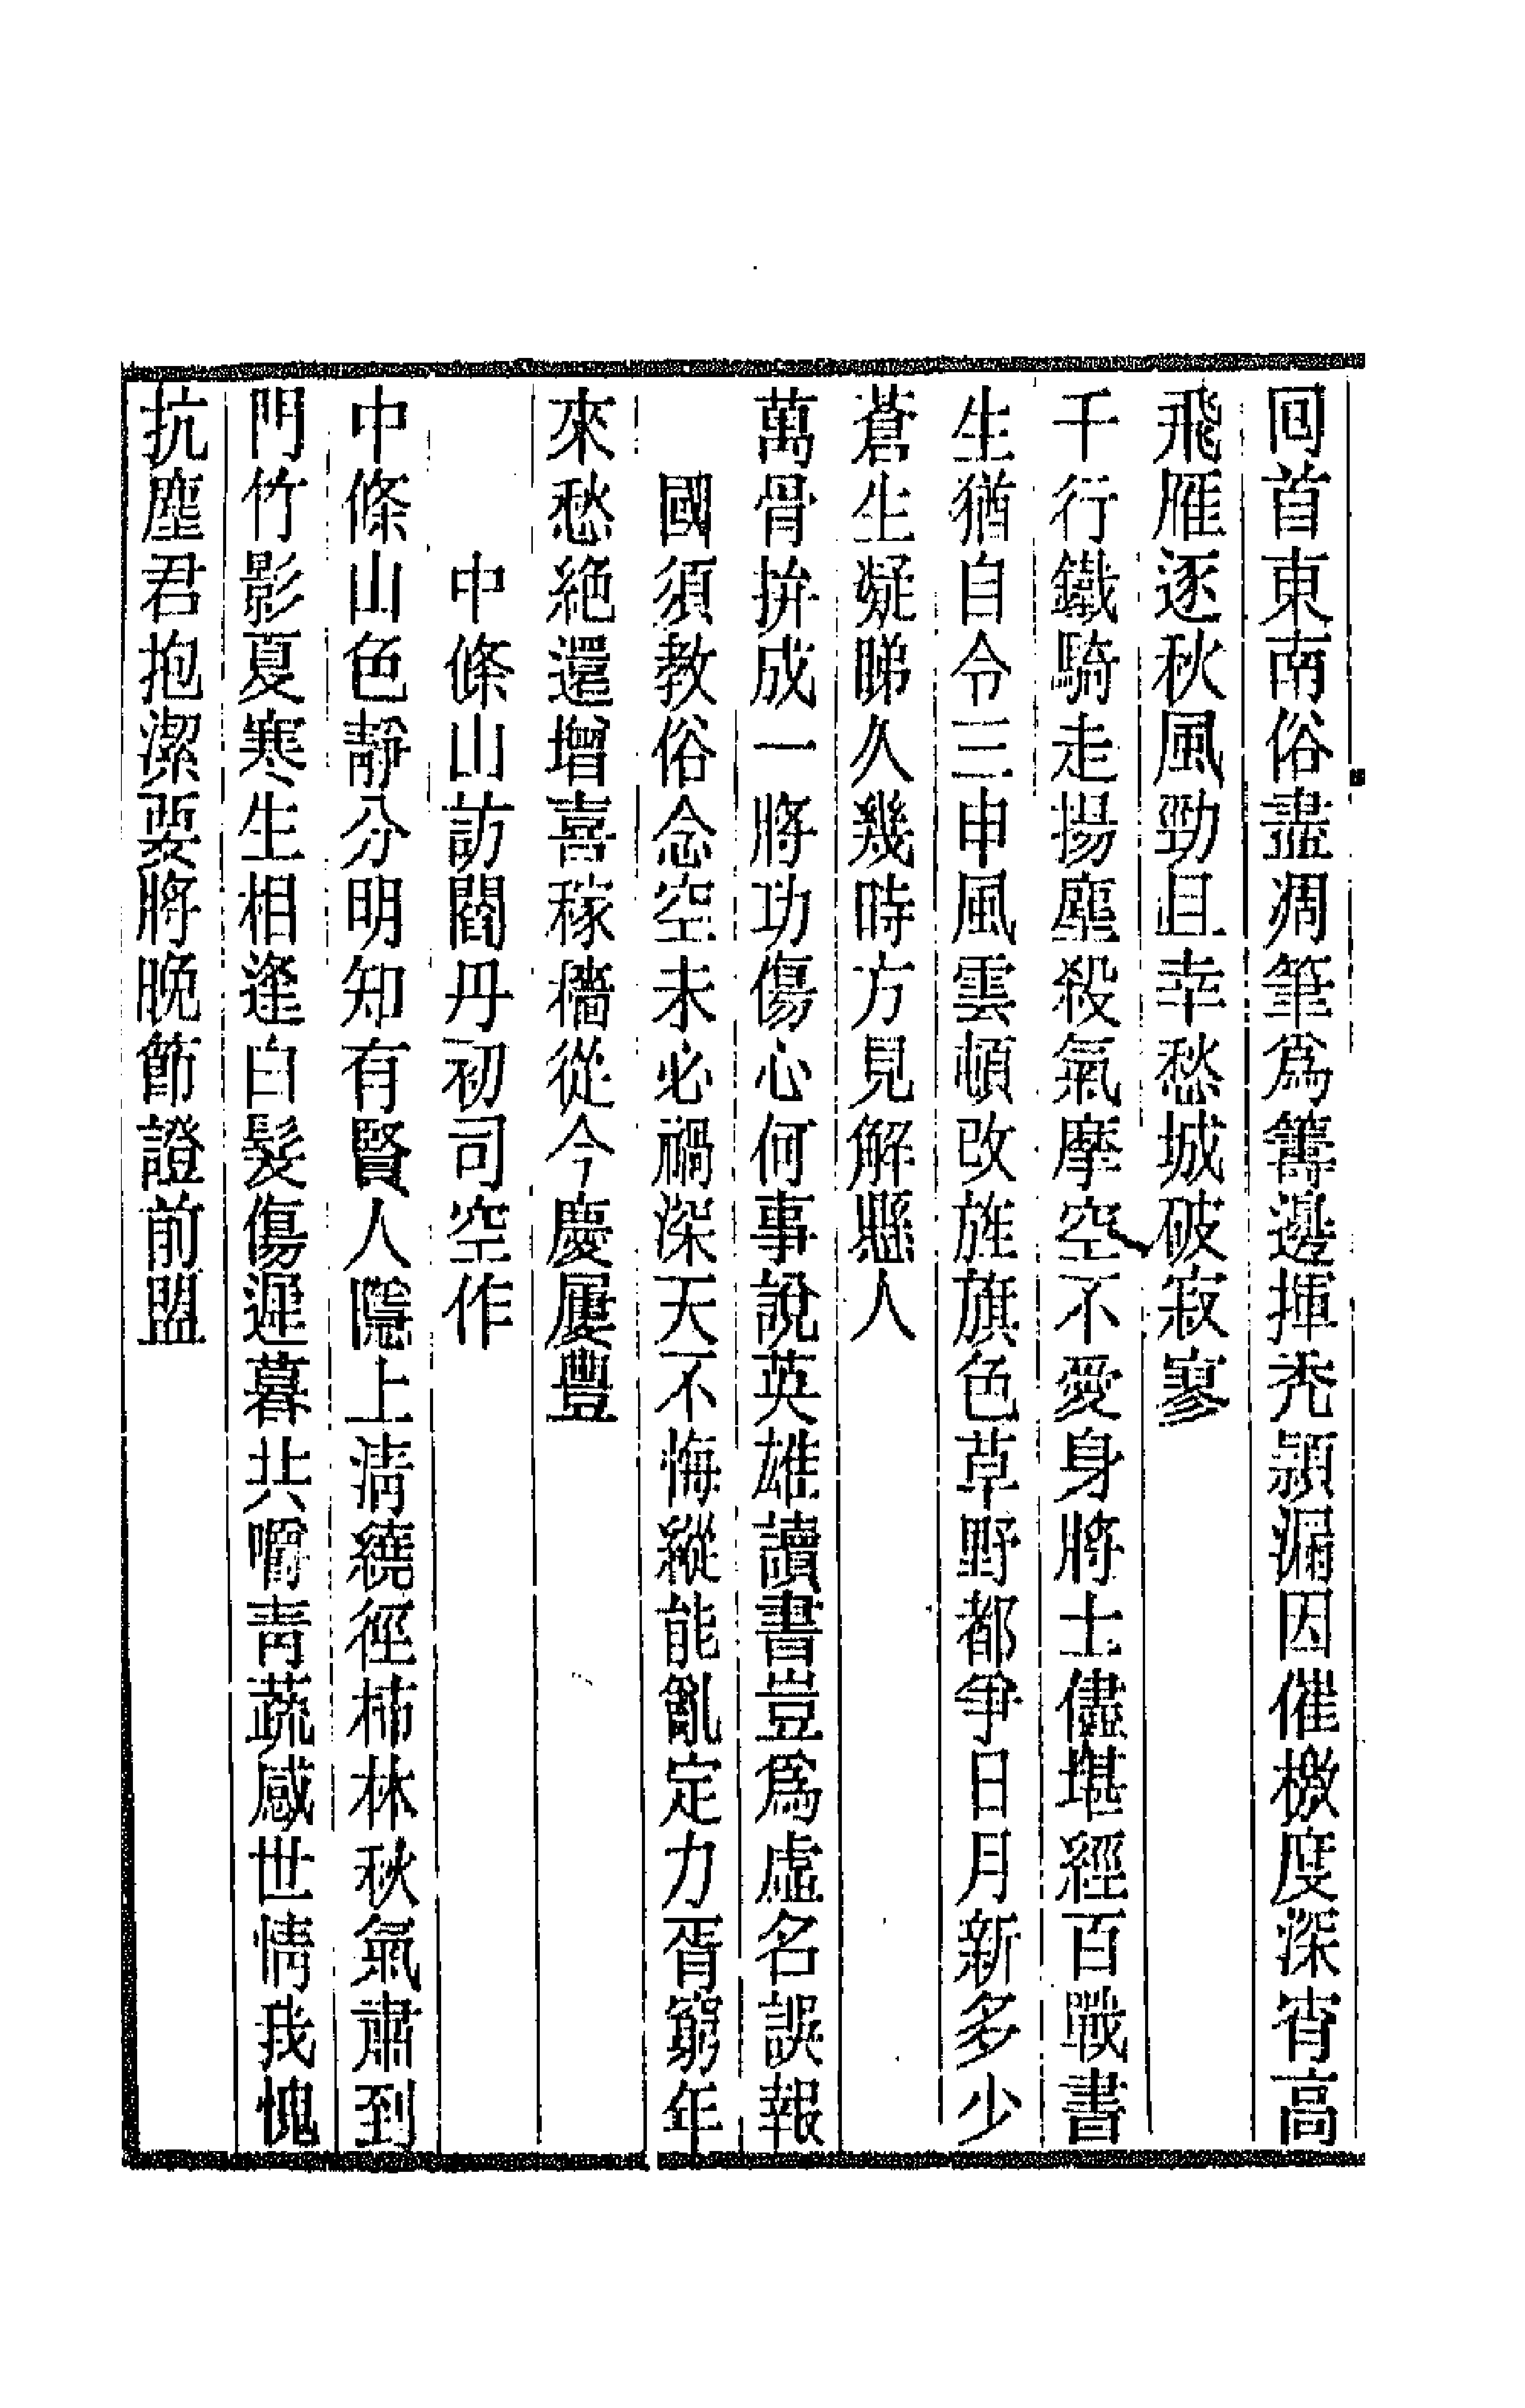 囘首東南俗盡凋筆爲籌邊揮禿潁漏因催檄度深宵高
飛雁逐秋風勁且幸愁城破寂寥
千行鐵騎走揚塵殺氣摩空不愛身將士儘堪經百戰書
生猶自令三申風雲頓改旌旗色草野都爭日月新多少
蒼生凝睇久幾時方見解懸人
萬骨拚成一將功傷心何事說英雄讀書豈爲虛名誤報
國須教俗念空未必禍深天不悔縱能亂定力胥窮年
來愁絕還增喜稼穡從今慶屢豐
中條山訪閻丹初司空作
中條山色靜分明知有賢人隱上淸繞徑柿林秋氣肅到
門竹影夏寒生相逢白髮傷遲暮共嚼靑蔬感世情我愧
抗塵君抱潔要將晚節證前盟